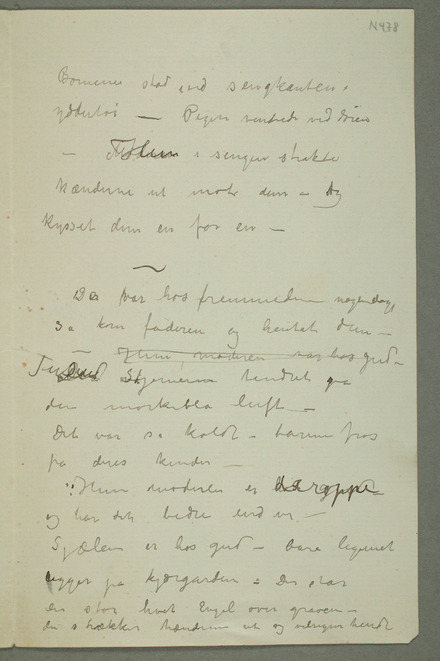 N 478
Børnene stod ved sengkanten i
yddertøi — Pigen ventede ved døren
— Hun i sengen strakte
hænderne ut mot dem – Og
kysset dem en for en —
De var hos fremmede nogen dage
så kom faderen og hentet dem –
Hun, moderen var hos gud –
Tusind Stjernerne tændtes på
den mørkeblå luft –
Det var så koldt – barna frøs
på deres kinder –
"Hun moderen er deroppe
og har det bedre end vi. –
Sjælen er hos gud – bare legemet
ligger på kjærgården – Der står
en stor hvit Engel over graven –
den strækker hænderne ut og